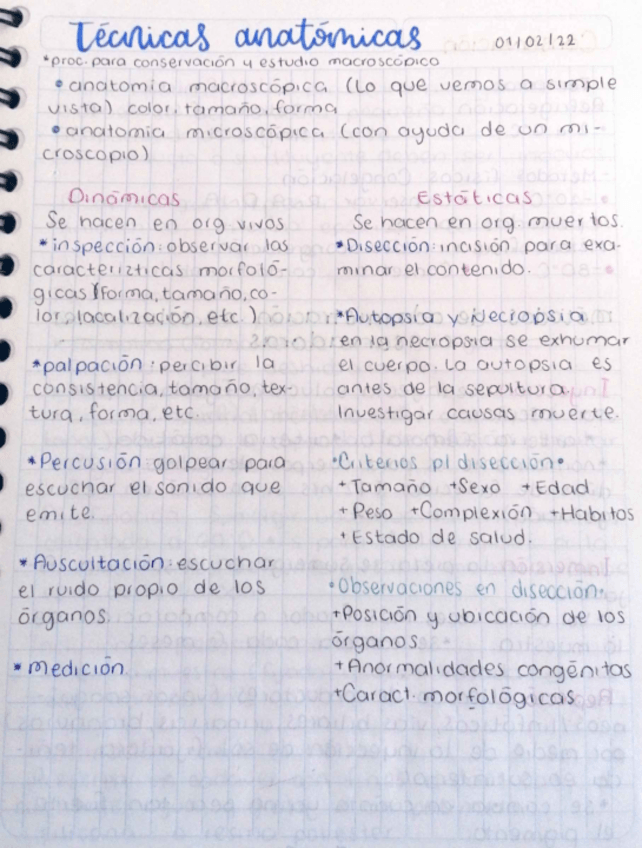 Técnicas anatómicas 01/02/22
*proc. para conservación y estudio macroscópico
•anatomía macroscópica (Lo que vemos a simple
vista) color, tamaño, forma
•anatomía microscópica (con ayuda de un mi-
croscopio)
Dinámicas
Se hacen en org. vivos
*inspección: observar las
caracterizticas morfoló-
gicas (forma, tamaño, co-
lor, lacalización, etc.)
*palpación: percibir la
consistencia, tamaño, tex-
tura, forma, etc.
*Percusión: golpear para
escuchar el sonido que
emite.
*Auscultación: escuchar
el ruido propio de los
órganos.
*medición.
Estáticas
Se hacen en org. muertos.
*Disección: incisión para exa-
minar el contenido.
*Autopsia y Necropsia
en la necropsia se exhumar
el cuerpo. La autopsia es
antes de la sepultura.
Investigar causas muerte.
•Criterios p/ disección•
+Tamaño +Sexo +Edad
+Peso +Complexión +Habitos
+Estado de salud.
•Observaciones en disección•
+Posición y ubicación de los
órganos
+Anormalidades congénitas
+Caract. morfológicas